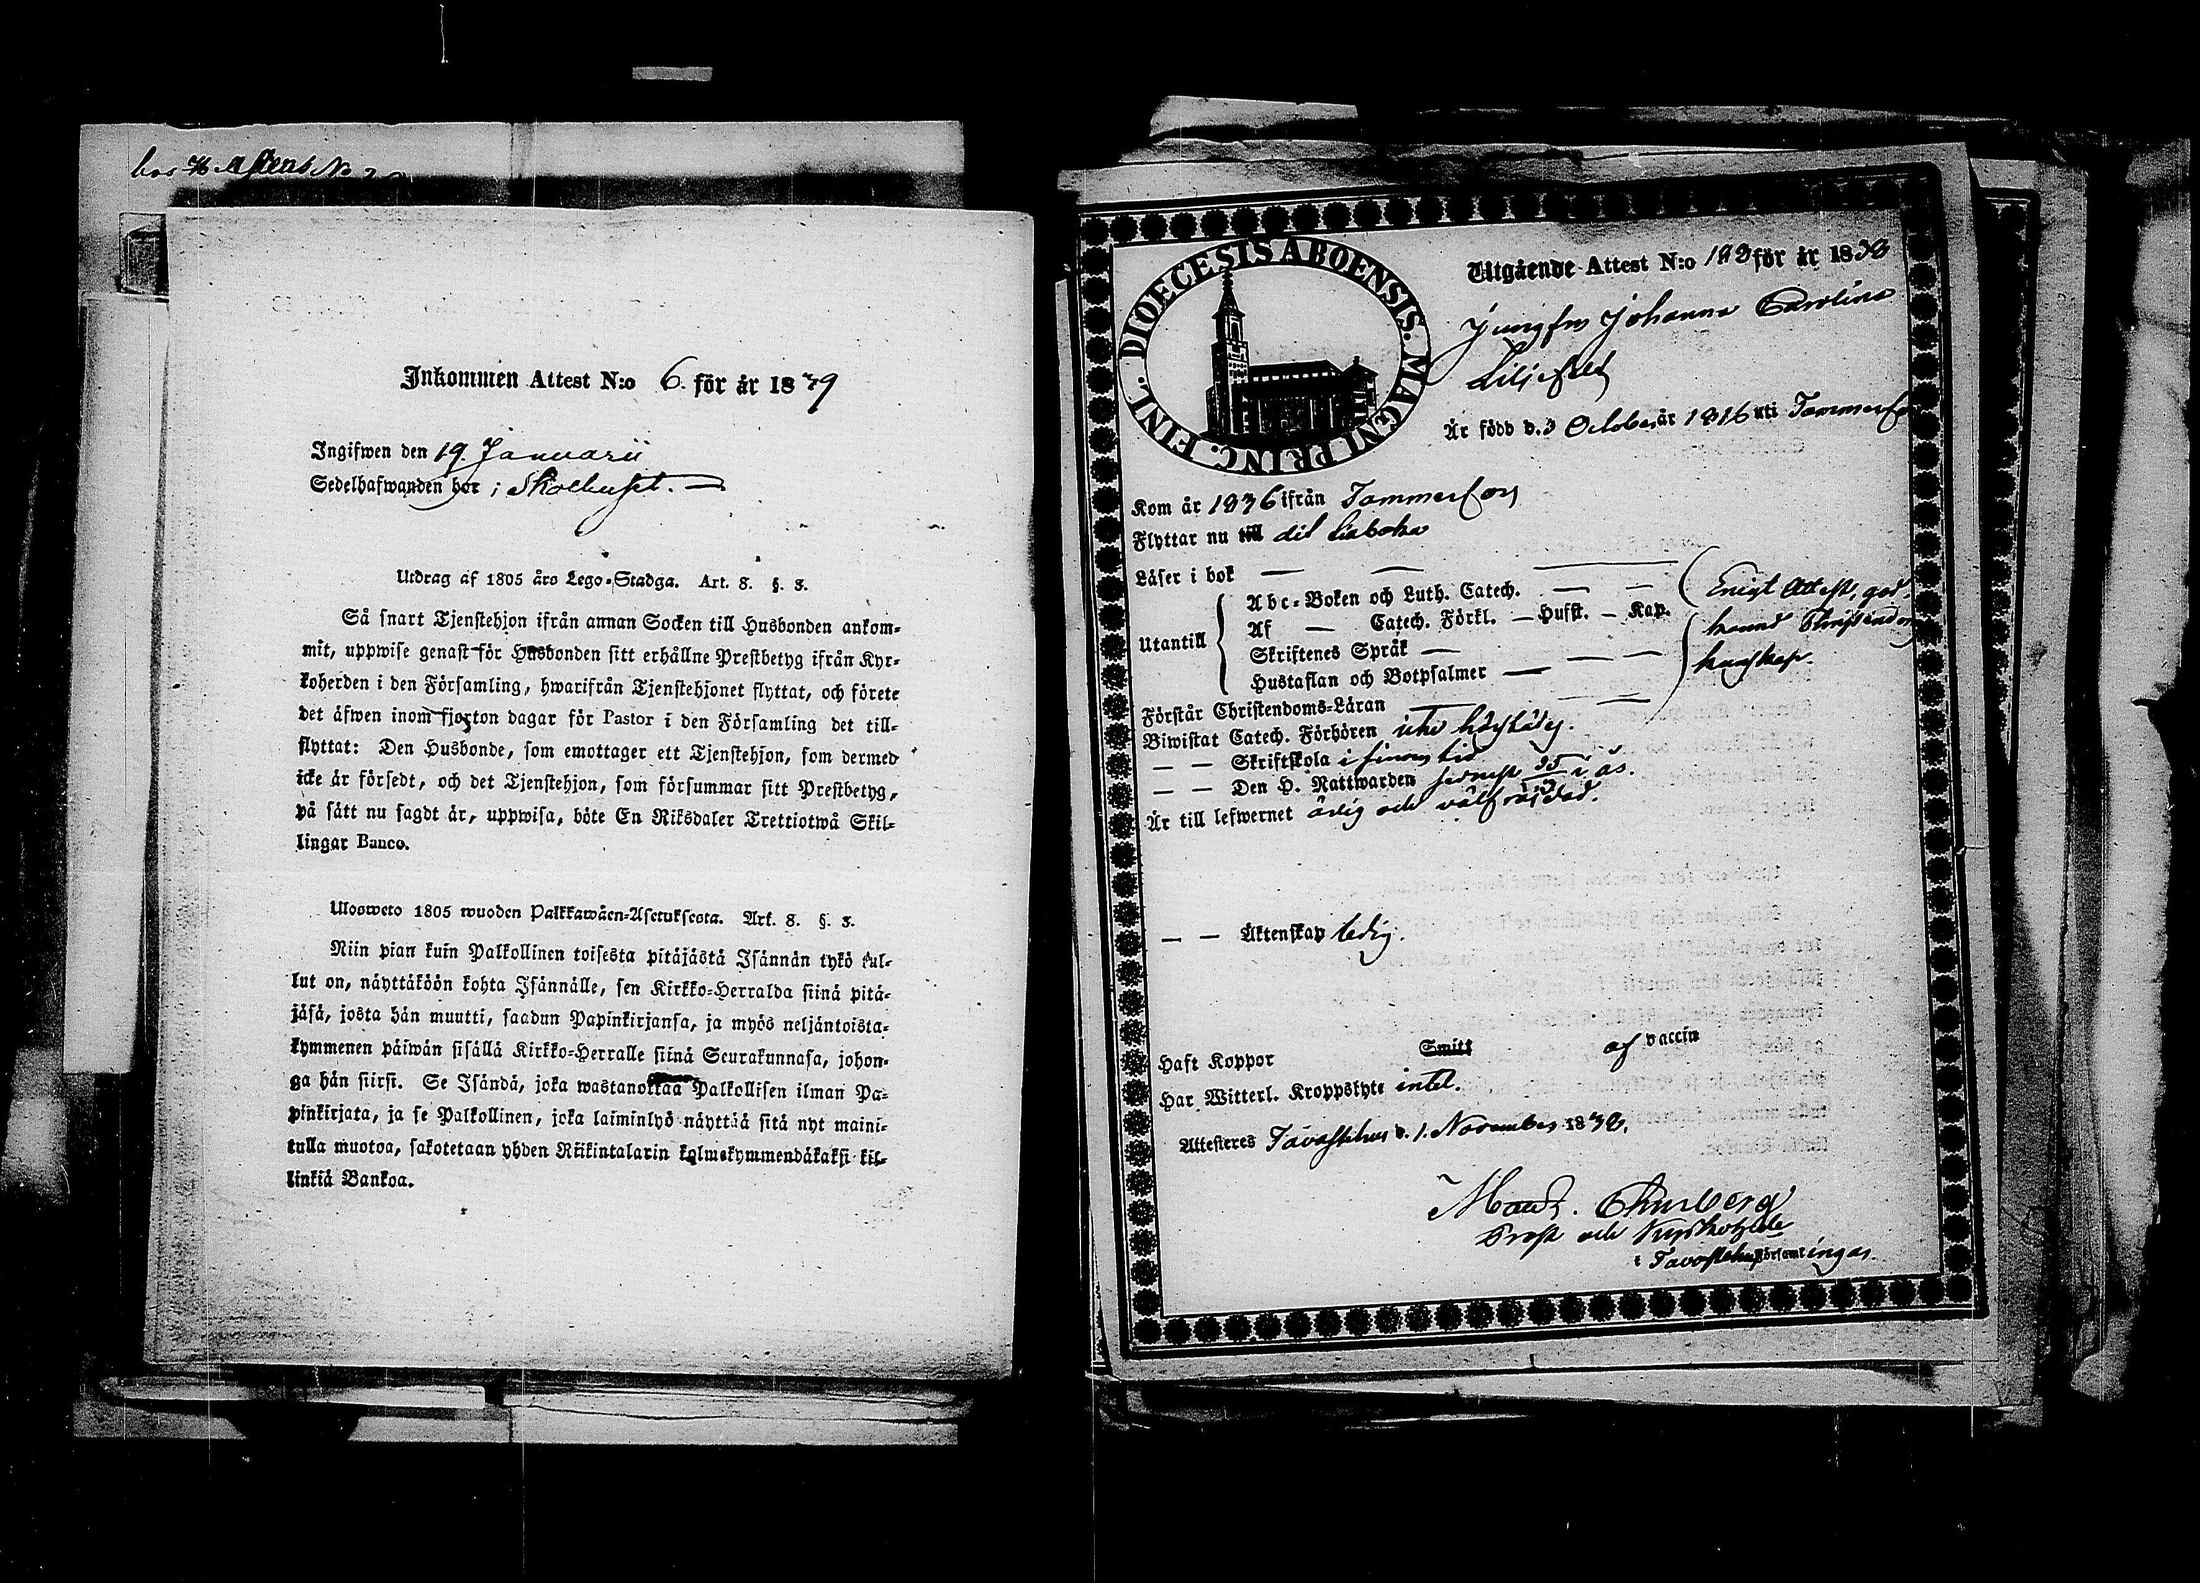 Inkommen Attest N:o 6. för år 1839
Ingifwen den 19. Januarii
Sedelhafwanden bor i Skolhuset.
Utdrag af 1805 års Lego-Stadga. Art. 8. §. 3.
Så snart Tjenstehjon ifrån annan Socken till Husbonden ankom-
mit, uppwise genast för Husbonden sitt erhållne Prestbetyg ifrån Kyr-
koherden i den Församling, hwarifrån Tjenstehjonet flyttat, och förete
det äfwen inom fjorton dagar för Pastor i den Församling det till-
flyttat: Den Husbonde, som emottager ett Tjenstehjon, som dermed
icke är försedt, och det Tjenstehjon, som försummar sitt Prestbetyg,
på sätt nu sagdt är, uppwisa, böte En Riksdaler Trettiotwå Skil-
lingar Banco.
Ulosweto 1805 wuoden Palkkawäen-Asetuksesta. Art. 8. §. 3.
Niin pian kuin Palkollinen toisesta pitäjästä Isännän tykö tul-
lut on, näyttäköön kohta Isännälle, sen Kirkko-Herralda siinä pitä-
jäsä, josta hän muutti, saadun Papinkirjansa, ja myös neljäntoista-
kymmenen päiwän sisällä Kirkko-Herralle siinä Seurakunnasa, johon-
ga hän siirsi. Se Isändä, joka wastanottaa Palkollisen ilman Pa-
pinkirjata, ja se Palkollinen, joka laiminlyö näyttää sitä nyt maini-
tulla muotoa, sakotetaan yhden Riikintalarin kolmekymmendäkaksi kil-
linkiä Bankoa.
DIOECESIS ABOENSIS. MAGNI PRINC. FINL.
Utgående Attest N:o för år 1838
Jungfru Johanna Carolina
Är född d. 3 October år 1816 uti Tammerfors
Kom år 1836 ifrån Tammerfors
Flyttar nu till
Läser i bok
Utantill
Abc-Boken och Luth. Catech.
Af — Catech. Förkl. — Husst. — Kap.
Skriftenes Språk
Hustaflan och Botpsalmer
Enligt Attest, god
kännedom
kunskap.
Förstår Christendoms-Läran
Biwistat Catech. Förhören
— — Skriftskola i sinom tid
— — Den H. Nattwarden sednast i år.
Är till lefwernet ärlig och välfrejdad.
— — Äktenskap ledig.
Haft Koppor Smitt af vaccin
Har Witterl. Kroppslyte intet.
Attesteres Tavastehus d. 1. November 1838.
Thurberg
Prost och Kyrkoherde
i Tavastehus Församlingar.